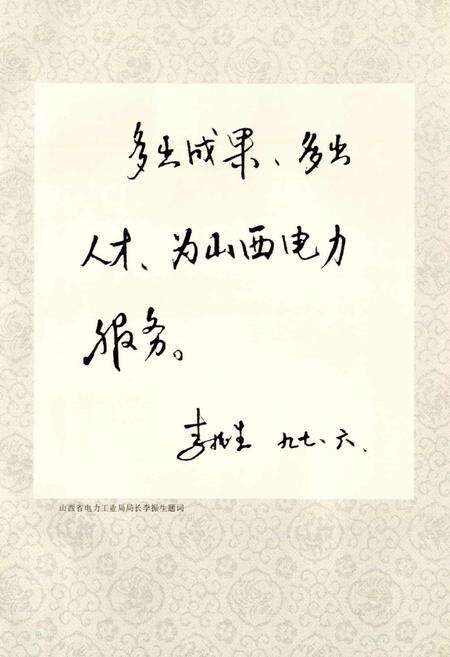 多出成果、多出
人才、为山西电力
服务。
李振生 九七、六、
山西省电力工业局局长李振生题词